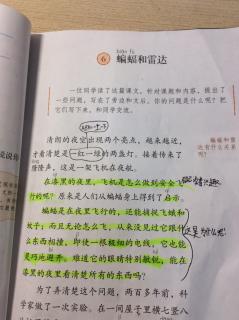 biān fú
6 蝙蝠和雷达
一位同学读了这篇课文，针对课题和内容，提出了
一些问题，写在了旁边和文后。你的问题是什么呢？把
它们写下来，和同学交流。
清朗的夜空出现两个亮点，越来越近，
才看清楚是一红一绿的两盏灯。接着传来了
隆隆声，这是一架飞机在夜航。
蝙蝠和雷
达有什么关系
在漆黑的夜里，飞机是怎么做到安全飞
行的呢？原来是人们从蝙蝠身上得到了启示。
蝙蝠是在夜里飞行的，还能捕捉飞蛾和
蚊子；而且无论怎么飞，从来没见过它跟什
么东西相撞，即使一根极细的电线，它也能
灵巧地避开。难道它的眼睛特别敏锐，能在
漆黑的夜里看清楚所有的东西吗？
为了弄清楚这个问题，两百多年前，科
学家做了一次实验。在一间屋子里横七竖八